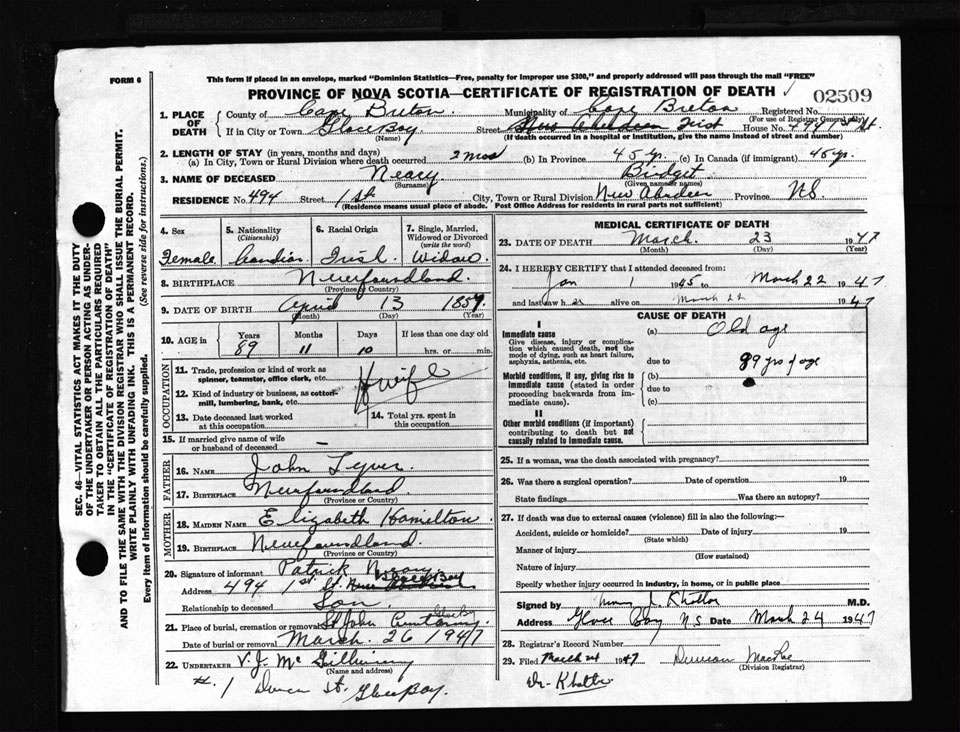 FORM 6
This form if placed in an envelope, marked "Dominion Statistics—Free, penalty for improper use $300," and properly addressed will pass through the mail "FREE"
PROVINCE OF NOVA SCOTIA—CERTIFICATE OF REGISTRATION OF DEATH
02509
1. PLACE OF DEATH
County of Cape Breton Municipality of Cape Breton Registered No.
(For use of Registrar General only)
If in City or Town Glace Bay Street House No. 494 1st St.
(Name) (If death occurred in a hospital or institution, give the name instead of street and number)
2. LENGTH OF STAY (in years, months and days)
(a) In City, Town or Rural Division where death occurred 2 mos (b) In Province 45 yrs. (c) In Canada (if immigrant) 45 yrs.
3. NAME OF DECEASED Neary Bridget
(Surname) (Given name or names)
RESIDENCE No. 494 Street 1st City, Town or Rural Division New Aberdeen Province N.S
(Residence means usual place of abode. Post Office Address for residents in rural parts not sufficient)
4. Sex 5. Nationality (Citizenship) 6. Racial Origin 7. Single, Married, Widowed or Divorced (write the word)
Female Canadian Irish Widow.
8. BIRTHPLACE Newfoundland.
(Province or Country)
9. DATE OF BIRTH April 13 1857.
(Month) (Day) (Year)
10. AGE in Years Months Days If less than one day old
89 11 10 hrs. or min.
OCCUPATION
11. Trade, profession or kind of work as spinner, teamster, office clerk, etc. H wife
12. Kind of industry or business, as cotton-mill, lumbering, bank, etc.
13. Date deceased last worked at this occupation
14. Total yrs. spent in this occupation
15. If married give name of wife or husband of deceased —
FATHER
16. NAME John
17. BIRTHPLACE Newfoundland.
(Province or Country)
MOTHER
18. MAIDEN NAME Elizabeth Hamilton.
19. BIRTHPLACE Newfoundland.
(Province or Country)
20. Signature of informant Patrick Neary
Address 494 1st St. Glace Bay
Relationship to deceased Son.
21. Place of burial, cremation or removal St John
Date of burial or removal March. 26 1947
22. UNDERTAKER V. J. Mc
(Name and address)
# 1 St. Glace Bay.
MEDICAL CERTIFICATE OF DEATH
23. DATE OF DEATH March. 23 1947
(Month) (Day) (Year)
24. I HEREBY CERTIFY that I attended deceased from:
Jan 1 1945 to March 22 1947
and last saw h er alive on March 22 1947
CAUSE OF DEATH
I
Immediate cause
Give disease, injury or complication which caused death, not the mode of dying, such as heart failure, asphyxia, asthenia, etc.
(a) Old age
due to 89 yrs of age
Morbid conditions, if any, giving rise to immediate cause (stated in order proceeding backwards from immediate cause).
(b)
due to
(c)
II
Other morbid conditions (if important) contributing to death but not causally related to immediate cause.
25. If a woman, was the death associated with pregnancy?
26. Was there a surgical operation? Date of operation 19
State findings Was there an autopsy?
27. If death was due to external causes (violence) fill in also the following:—
Accident, suicide or homicide? Date of injury 19
(State which)
Manner of injury
(How sustained)
Nature of injury
Specify whether injury occurred in industry, in home, or in public place
Signed by M.D.
Address Glace Bay N.S. Date March 24 1947
28. Registrar's Record Number
29. Filed March 24 1947 Duncan MacRae
(Division Registrar)
Dr.
SEC. 46—VITAL STATISTICS ACT MAKES IT THE DUTY
OF THE UNDERTAKER OR PERSON ACTING AS UNDER-
TAKER TO OBTAIN ALL THE PARTICULARS REQUIRED
IN THE "CERTIFICATE OF REGISTRATION OF DEATH"
AND TO FILE THE SAME WITH THE DIVISION REGISTRAR WHO SHALL ISSUE THE BURIAL PERMIT.
WRITE PLAINLY WITH UNFADING INK. THIS IS A PERMANENT RECORD.
Every item of Information should be carefully supplied. (See reverse side for instructions.)